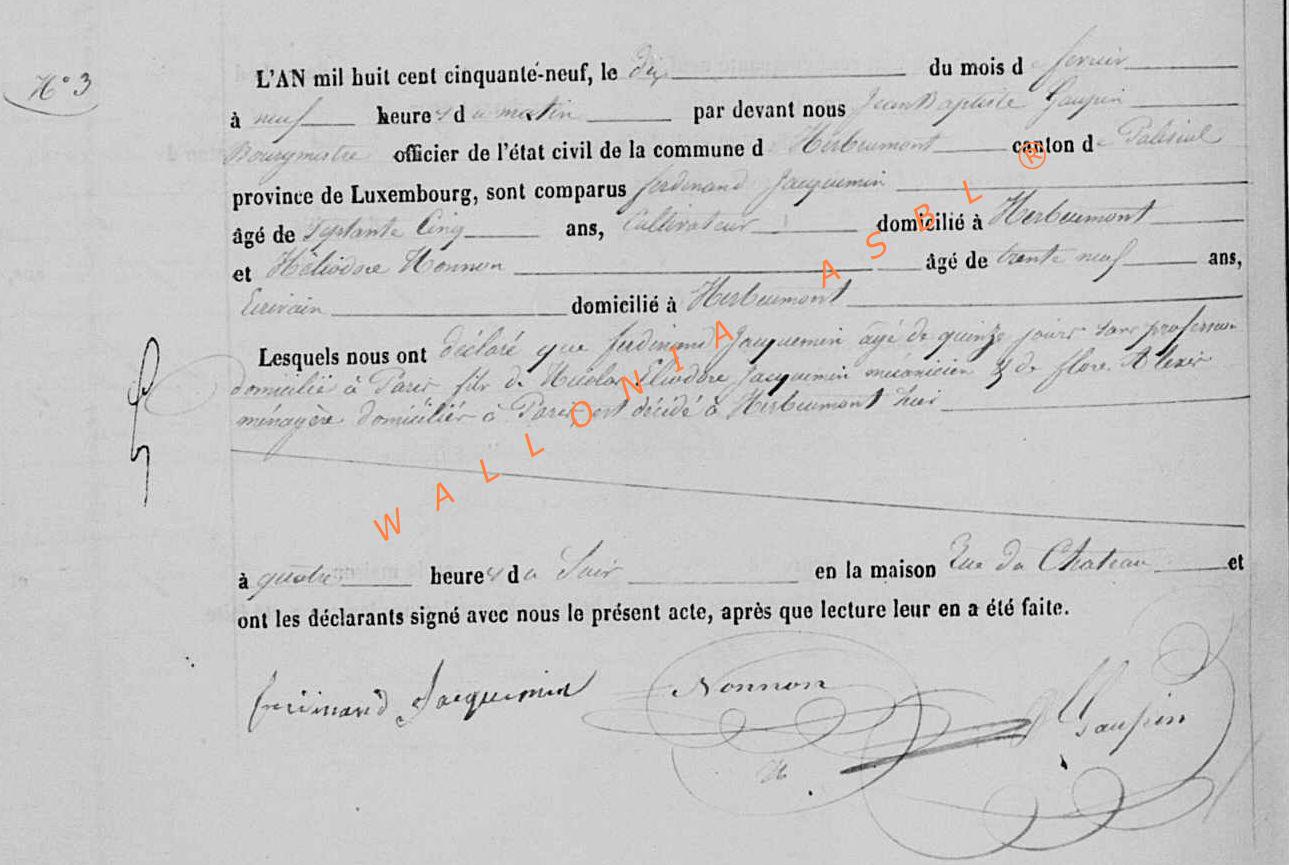 N° 3
L'AN mil huit cent cinquante-neuf, le dix du mois de fevrier
à neuf heures du matin par devant nous Jean Baptiste Gaupin
Bourgmestre officier de l'état civil de la commune d Herbeumont canton de Paliseul
province de Luxembourg, sont comparus ferdinand Jacquemin
âgé de Septante Cinq ans, Cultivateur domicilié à Herbeumont
et Héliodore Nonnon âgé de trente neuf ans,
Ecrivain domicilié à Herbeumont
Lesquels nous ont déclaré que ferdinand Jacquemin agé de quinze jours sans profession
domicilié à Paris fils de Nicolas Eliodore Jacquemin mécanicien & de flore Alexis
ménagère domiciliés à Paris est décidé à Herbeumont hier
à quatre heures du Soir en la maison Rue du Chateau et
ont les déclarants signé avec nous le présent acte, après que lecture leur en a été faite.
ferdinand Jacquemin Nonnon Gaupin
WALLONIA ASBL ®